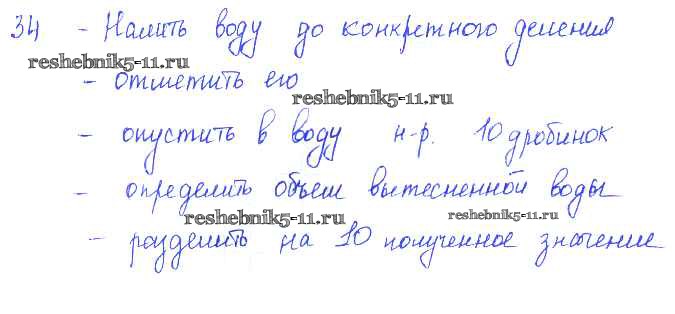 34 - Налить воду до конкретного деления
reshebnik5-11.ru
- отметить его
reshebnik5-11.ru
- опустить в воду н-р. 10 дробинок
- определить объем вытесненной воды
reshebnik5-11.ru reshebnik5-11.ru
- разделить на 10 полученное значение